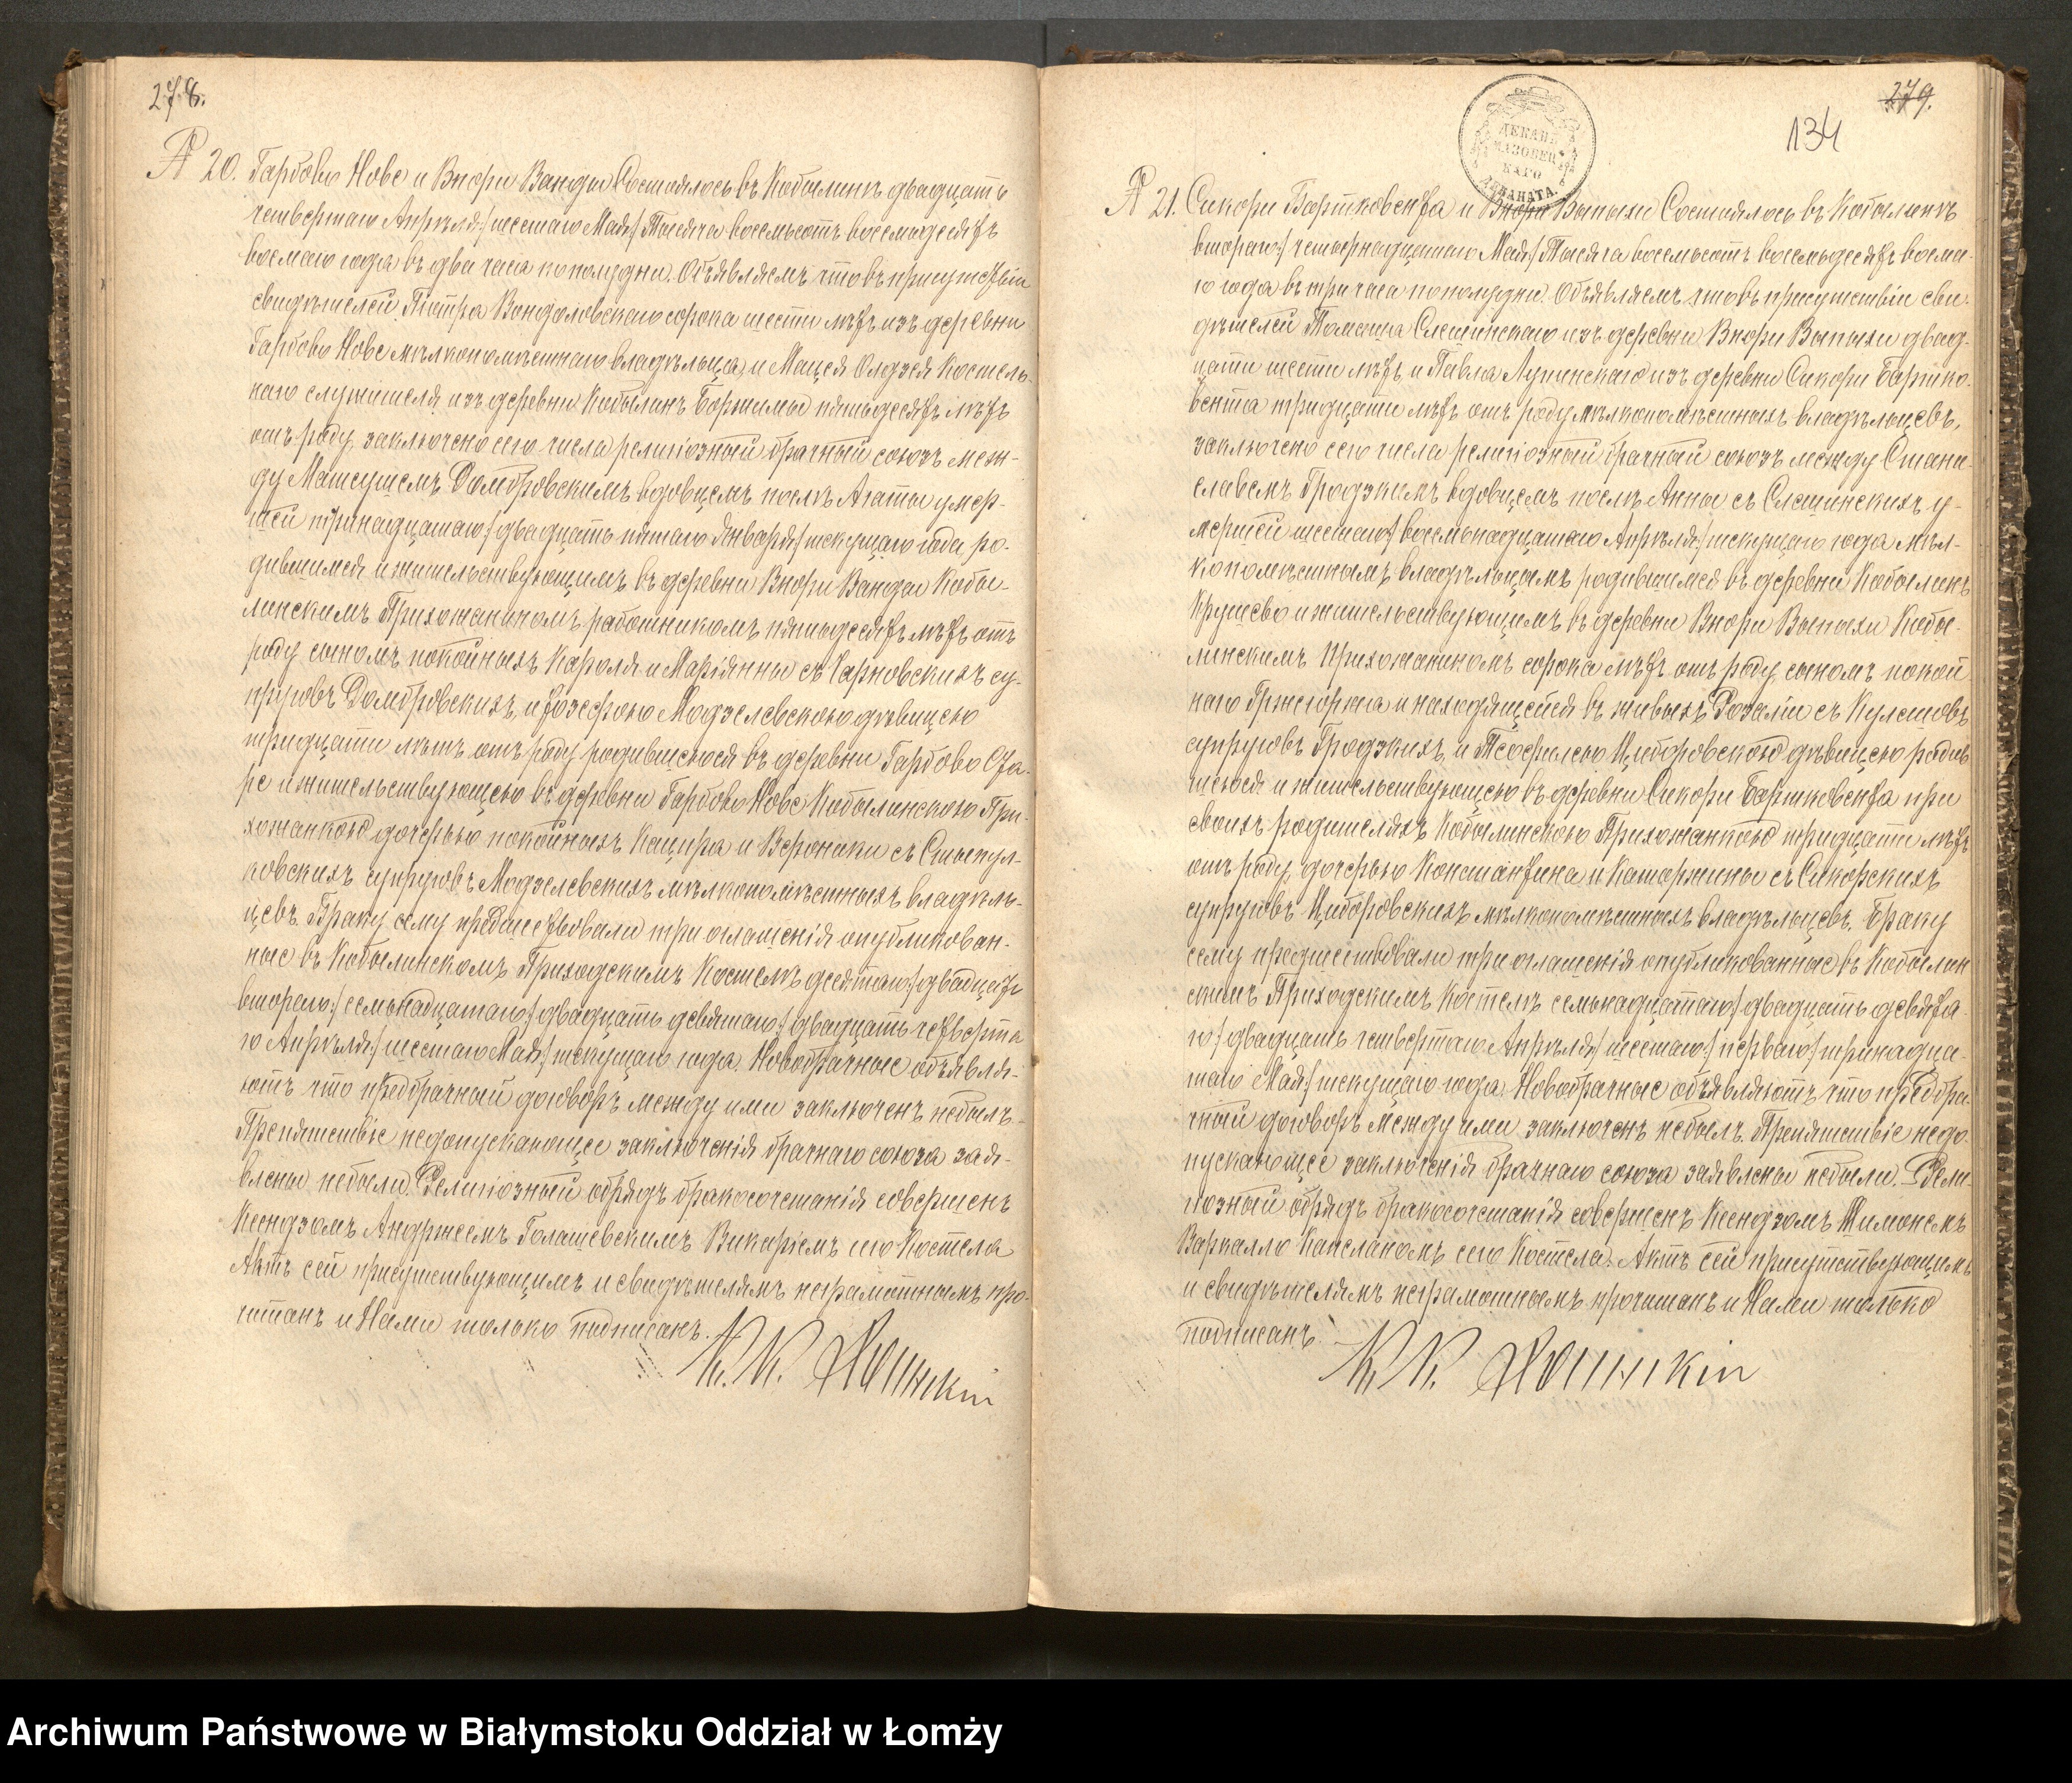 278.
№ 20. Гарбово Нове и Внори Ванды Состоялось въ Кобылинѣ двадцать
четвертаго Апрѣля /шестаго Мая/ Тысяча восемьсотъ восемьдесятъ
восьмаго года въ два часа пополудни. Объявляемъ что въ присутствіи
свидѣтелей Піотра Вондоловскаго сорока шести лѣтъ изъ деревни
Гарбово Нове мѣлкопомѣстнаго владѣльца, и Мацея Олдзея Костель-
наго служителя изъ деревни Кобылинъ Боржимы пятьдесятъ лѣтъ
отъ роду, заключено сего числа религіозный брачный союзъ меж-
ду Матеушемъ Домбровскимъ вдовцемъ послѣ Агаты умер-
шей тринадцатаго /двадцать пятаго Января/ текущаго года, ро-
дившимся и жительствующимъ въ деревни Внори Ванды Кобы-
линскимъ Прихожаниномъ работникомъ пятьдесятъ лѣтъ отъ
роду сыномъ покойныхъ Кароля и Маріянны съ Чарновскихъ су-
пруговъ Домбровскихъ, и Іозефою Модзелевскою дѣвицею
тридцати лѣтъ отъ роду родившеюся въ деревни Гарбово Ста-
ре и жительствующею въ деревни Гарбово Нове Кобылинскою При-
хожанкою дочерью покойныхъ Кацпра и Вероники съ Стыпул-
ковскихъ супруговъ Модзелевскихъ мѣлкопомѣстныхъ владѣль-
цевъ. Браку сему предшествовали три оглашенія опубликован-
ные въ Кобылинскомъ Приходскимъ Костелѣ десятаго /двадцать
втораго/ семьнадцатаго /двадцать девятаго/ двадцать четверта
го Апрѣля /шестаго Мая/ текущаго года. Новобрачные объявля-
ютъ что предбрачный договоръ между ими заключенъ небылъ.
Препятствіе недопускающее заключенія брачнаго союза зая-
влены небыли. Религіозный обрядъ бракосочетанія совершенъ
Ксендзомъ Андржеемъ Голашевскимъ Викаріемъ сего Костела
Актъ сей присутствующимъ и свидѣтелямъ неграмотнымъ про-
читанъ и Нами только подписанъ.
279.
134
ДЕКАНЪ
МАЗОВЕЦ
КАГО
ДЕКАНАТА.
№ 21. Сикори Бартковента и Внори Выпыхи Состоялось въ Кобылинѣ
втораго /четырнадцатаго Мая/ Тысяча восемьсотъ восемьдесятъ восьма-
го года въ три часа пополудни. Объявляемъ что въ присутствіи сви-
дѣтелей Томаша Слешинскаго изъ деревни Внори Выпыхи двад-
цати шести лѣтъ, и Павла Лупинскаго изъ деревни Сикори Бартко-
вента тридцати лѣтъ отъ роду мѣлкопомѣстныхъ владѣльцевъ,
заключено сего числа религіозный брачный союзъ между Стани-
славемъ Гродзкимъ вдовцемъ послѣ Анны съ Слешинскихъ у-
мершей шестаго /восемьнадцатаго Апрѣля/ текущаго года мѣл-
копомѣстнымъ владѣльцамъ родившимся въ деревни Кобылинъ
Крушево и жительствующимъ въ деревни Внори Выпыхи Кобы-
линскимъ Прихожаниномъ сорока лѣтъ отъ роду сыномъ покой
наго Гржегоржа и находящейся въ живыхъ Розаліи съ Кулешовъ
супруговъ Гродзкихъ, и Теофилею Циборовскою дѣвицею родив
шеюся и жительствующею въ деревни Сикори Бартковента при
своихъ родителяхъ Кобылинскою Прихожанкою тридцати лѣтъ
отъ роду, дочерью Константина и Катаржины съ Сикорскихъ
супруговъ Циборовскихъ мѣлкопомѣстныхъ владѣльцевъ. Браку
сему предшествовали три оглашенія опубликованные въ Кобылин
скимъ Приходскимъ Костелѣ семьнадцатаго /двадцать девята-
го/ двадцать четвертаго Апрѣля /шестаго/ перваго /тринадца-
таго Мая/ текущаго года. Новобрачные объявляютъ что предбра-
чный договоръ между ими заключенъ небылъ. Препятствіе недо-
пускающее заключенія брачнаго союза заявлены небыли. Рели-
гіозный обрядъ бракосочетанія совершенъ Ксендзомъ Шимонемъ
Варкалло Капеланомъ сего Костела. Актъ сей присутствующимъ
и свидѣтелямъ неграмотнымъ прочитанъ и Нами только
подписанъ.